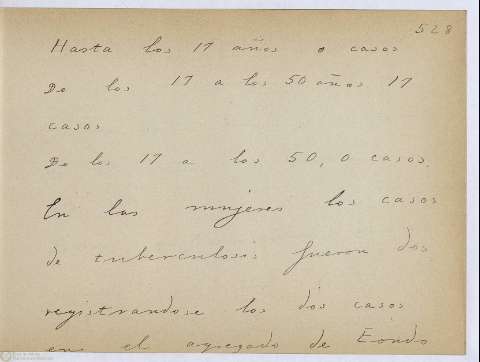 528
Hasta los 17 años 0 casos
De los 17 a los 50 años 17
casos
De los 17 a los 50, 0 casos.
En las mujeres los casos
de tuberculosis fueron dos
registrandose los dos casos
en el agregado de Fondo